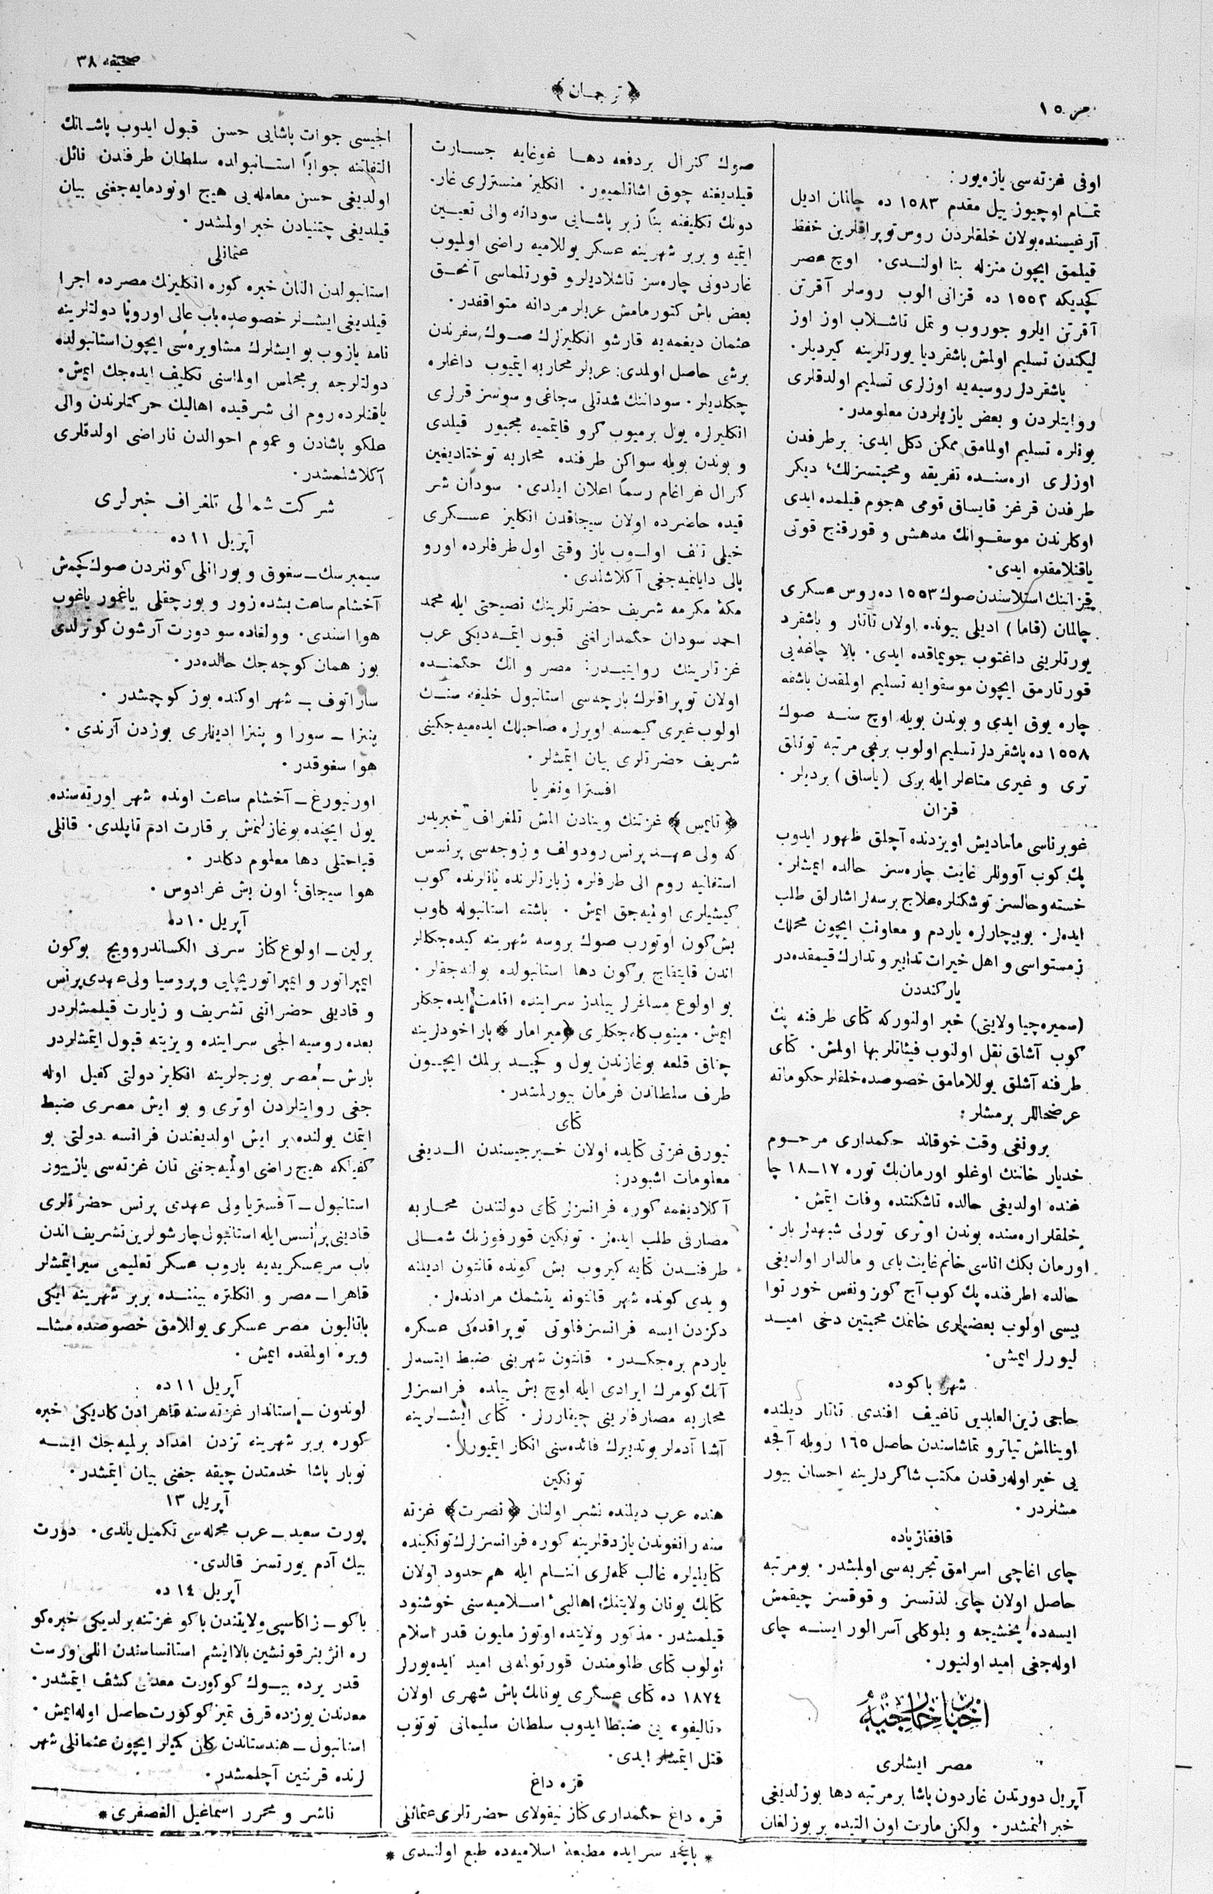 صحیفه ٣٨
﴿ ترجمان ﴾
نمرو ١٥
اوفی غزته‌سی یازه‌یور:
تمام اوچیوز ییل مقدم ١٥٨٣ ده چانان ادیل
آرغیسنده بولان خلقلردن روس توپراقلرین خفظ
قیلمق ایچون منزله بنا اولندی. اوچ عصر
کچدیکه ١٥٥٢ ده قزانی الوب روسلر آقرتن
آقرتن ایلرو جوروب و تمل تاشلاب اوز اوز
لیکندن تسلیم اولمش باشقردیا یورتلرینه کیردیلر.
باشقردلر روسیه‌یه اوزلری تسلیم اولدقلری
روایتلردن و بعض یازیلردن معلومدر.
بونلره تسلیم اولمامق ممکن دکل ایدی: برطرفدن
اوزلری اره‌سنده تفریقه و محبتسزلك، دیکر
طرفدن قرغز قایساق قومی هجوم قیلمده ایدی
اوکلرندن موسقوانك مدهش و قورقنج قوتی
یاقنلامقده ایدی.
قزاننك استلاسندن صوك ١٥٥٣ ده روس عسکری
چالمان (قاما) ادیلی بیونده اولان تاتار و باشقرد
یورتلرینی داغتوب جویماقده ایدی. بالا چاغه‌یی
قورتارمق ایچون موسقوایه تسلیم اولمقدن باشقه
چاره یوق ایدی و بوندن بویله اوچ سنه صوك
١٥٥٨ ده باشقردلر تسلیم اولوب برنجی مرتبه تونلق
تری و غیری متاعلر ایله برکی (یاساق) بردیلر.
قزان
غوبرناسی مامادیش اویزدنده آچلق ظهور ایدوب
پك کوب آوولر غایت چاره‌سز حالده ایمشلر.
خسته و حالسز توشکنلره علاج برسه‌لر اشارلق طلب
ایده‌لر. بوبیچارلره یاردم و معاونت ایچون محلك
زمستواسی و اهل خیرات تدابیر و تدارك قیمقده‌در
یارکنددن
(سمیره‌چیا ولایتی) خبر اولنورکه کتای طرفنه پك
کوب آشاق نقل اولنوب فیئاتلر بها اولمش. کتای
طرفنه آشلق یوللامامق خصوصده خلقلر حکوماته
عرضحاللر برمشلر:
برونغی وقت خوقاند حکمداری مرحوم
خدیار خاننك اوغلو اورمان بك توره ١٧-١٨ چا
غنده اولدیغی حالده تاشکنتده وفات ایتمش.
خلقلر اره‌سنده بوندن اوتری تورلی شبهه‌لر بار.
اورمان بکك اناسی خانم غایت بای و مالدار اولدیغی
حالده اطرفنده پك کوب آج کوز و نفس خور توا
بیسی اولوب بعضیلری خانمك محبتین دخی امید
لیورلر ایمش.
شهر باکوده
حاجی زین العابدین تاغیف افندی تاتار دیلنده
اوینالمش تیاترو تماشاسندن حاصل ١٦٥ روبله آقچه
یی خیر اوله‌رقدن مکتب شاکردلرینه احسان بیور
مشلردر.
قافقازیاده
چای اغاچی اسرامق تجربه‌سی اولمشدر. بو مرتبه
حاصل اولان چای لذتسز و قوقسز چیقمش
ایسه‌ده یخشیجه و بلوکلی آسرالور ایسه چای
اوله‌جغی امید اولنیور.
اخبار خارجیه
مصر ایشلری
آپریل دورتدن غاردون پاشا برمرتبه دها بوزلدیغی
خبر النمشدر. ولکن مارت اون التیده بر بوزلغان
صوك کنرال بردفعه دها غوغایه جسارت
قیلدیغنه چوق اشانلمیور. انکلیز منسترلری غار.
دونك تکلیفنه بناً زبر پاشایی سودانه والی تعیین
ایتمیه و بربر شهرینه عسکر یوللامیه راضی اولمیوب
غاردونی چاره‌سز تاشلادیلرو قورتلماسی آنجق
بعض باش کتورمامش عربلر مردانه متواقفدر.
عثمان دیغمه‌یه قارشو انکلیزلرك صوك سفرندن
برشی حاصل اولمدی: عربلر محاربه ایتمیوب داغلره
چکلدیلر. سوداننك شدتلی سجاغی و سوسز قرلری
انکلیزلره یول برمیوب کرو قایتمیه مجبور قیلدی
و بوندن بویله سواکن طرفنده محاربه توختادیغین
کنرال غراغام رسماً اعلان ایلدی. سودان شر
قیده حاضرده اولان سیجاقدن انکلیز عسکری
خیلی تلف اولوب یاز وقتی اول طرفلرده اورو
پالی دایانمیه‌جغی آکلاشلدی.
مکهٔ مکرمه شریف حضرتلرینك نصیحتی ایله محمد
احمد سودان حکمدارلغنی قبول ایتمه‌دیکی عرب
غزتلرینك روایتیدر: مصر و انك حکمنده
اولان توپراقلرك بارچه‌سی استانبول خلیفه‌سنك
اولوب غیری کیمسه اویرلره صاحبلك ایده‌میه‌جکینی
شریف حضرتلری بیان ایتمشلر.
افستر اونغریا
﴿تایمس﴾ غزتنك وینادن المش تلغراف خبریدر
که ولی عهد پرنس رودولف و زوجه‌سی پرنسس
استفانیه روم الی طرفلره زیارتلرنده یانلرنده کوب
کیشیلری اولمیه‌جق ایمش. باشته استانبوله کلوب
بش کون اوتورب صوك بروسه شهرینه کیده‌جکلر
اندن قایتقاج برکون دها استانبولده بولنه‌جقلر.
بو اولوغ مسافرلر ییلدز سراینده اقامت ایده‌جکلر
ایمش. مینوب کله‌جکلری ﴿میرامار﴾ پاراخودلرینه
چناق قلعه بوغازندن یول و کچید برلمك ایچون
طرف سلطاندن فرمان بیورلمشدر.
کتای
نیورق غزتی کتایده اولان خبرجیسندن الدیغی
معلومات اشبودر:
آکلادیغمه کوره فرانسزلر کتای دولتندن محاربه
مصارفی طلب ایده‌لر. تونکین قورفوزینك شمالی
طرفندن کتایه کیروب بش کونده قانتون ادیلنه
و یدی کونده شهر قانتونه یتشمك مرادنده‌لر.
دکزدن ایسه فرانسز فلوتی توپراقده‌کی عسکره
یاردم بره‌جکدر. قانتون شهرینی ضبط ایتسه‌لر
آنك کومرك ایرادی ایله اوچ بش ییلده فرانسزلر
محاربه مصارفلرینی چیقاررلر. کتای ایشلرینه
آشنا آدملر بو تدبیرك فائده‌سنی انکار ایتمیورلر.
تونکین
هنده عرب دیلنده نشر اولنان ﴿نصرت﴾ غزته
سنه رانغوندن یازدقلرینه کوره فرانسزلرك تونکینده
کتایلیلره غالب کلمه‌لری انتام ایله هم حدود اولان
کتایك یونان ولایتنك اهالیی اسلامیه‌سنی خوشنود
قیلمشدر. مذکور ولایتده اوتوز ملیون قدر اسلام
اولوب کتای ظلومندن قورتوله‌یی امید ایده‌یورلر
١٨٧٤ ده کتای عسکری یونانك باش شهری اولان
«تالیفو» یی ضبط ایدوب سلطان سلیمانی توتوب
قتل ایتمشلر ایدی.
قره داغ
قره داغ حکمداری کناز نیقولای حضرتلری عثمانلی
الجیسی جوات پاشایی حسن قبول ایدوب پاشانك
التفاتنه جواباً استانبولده سلطان طرفندن نائل
اولدیغی حسن معامله‌یی هیج اونودمایه‌جغنی بیان
قیلدیغی چتنیادن خبر اولمشدر.
عثمانلی
استانبولدن النان خبره کوره انکلیزلك مصرده اجرا
قیلدیغی ایشلر خصوصده باب عالی اوروپا دولتلرینه
نامه یازوب بو ایشلرك مشاوره‌سی ایچون استانبولده
دولتلرجه برمجلس اولماسنی تکلیف ایده‌جك ایمش.
یاقنلرده روم الی شرقیده اهالینك حرکتلرندن والی
علکو پاشادن و عموم احوالدن ناراضی اولدقلری
آکلاشلمشدر.
شرکت شمالی تلغراف خبرلری
آپریل ١١ ده
سیمبرسك – سغوق و بورانلی کونلردن صوك کچمش
آخشام ساعت بشده زور و بورچقلی یاغمور یاغوب
هوا اسندی. وولغاده سو دورت آرشون کوترلدی
بوز همان کوچه‌جك حالده‌در.
ساراتوف – شهر اوکنده بوز کوچمشدر.
پنزا – سورا و پنزا ادیللری بوزدن آرندی.
هوا سغوقدر.
اورنبورغ – آخشام ساعت اونده شهر اورته‌سنده
یول ایچنده بوغازلنمش بر قارت ادم تاپلدی. قاتلی
قباحتلی دها معلوم دکلدر.
هوا سیجاق؛ اون بش غرادوس.
آپریل ١٠ ده
برلین – اولوغ کناز سرکی الکساندروویچ بوکون
ایمپراتور و ایمپراتوریچه‌یی و پروسیا ولی عهدی پرنس
و قادینی حضراتنی تشریف و زیارت قیلمشلردر
بعده روسیه الجی سراینده و یزیته قبول ایتمشلردر
پارش – مصر بورجلرینه انکلیز دولتی کفیل اوله
جغی روایتلردن اوتری و بو ایش مصری ضبط
ایتمك یولنده بر ایش اولدیغندن فرانسه دولتی بو
کفیلکه هیچ راضی اولمیه‌جغنی تان غزته‌سی یازییور
استانبول – آفستریا ولی عهدی پرنس حضرتلری
قادینی پرنسس ایله استانبول چارشولرین تشریف اندن
باب سرعسکریه‌یه باروب عسکر تعلیمی سیرایتمشلر
قاهرا – مصر و انکلتره بیننده بربر شهرینه ایکی
باتالیون مصر عسکری یوللامق خصوصده مشا-
وره اولمقده ایمش.
آپریل ١١ ده
لوندون – استاندار غزته‌سنه قاهرادن کلدیکی خبره
کوره بربر شهرینه تزدن امداد برلمیه‌جك ایسه
نوبار پاشا خدمتدن چیقه جغنی بیان ایتمشدر.
آپریل ١٣
پورت سعید – عرب محله‌سی تکمیل یاندی. دورت
بیك آدم یورتسز قالدی.
آپریل ١٤ ده
باکو – زاکاسپی ولایتندن باکو غزتنه برلدیکی خبره‌کو
ره انژینر قونشین بالا ایشم استانساسندن اللی ورست
قدر یرده بیوك کوکورت معدنی کشف ایتمشدر.
معدندن یوزده قرق تمیز کوکورت حاصل اوله‌ایمش.
استانبول – هندستاندن کلن کمیلر ایچون عثمانلی شهر
لرنده قرنتین آچلمشدر.
ناشر و محرر اسماعیل الغصفری*
* باغچه سرایده مطبعهٔ اسلامیه‌ده طبع اولندی *